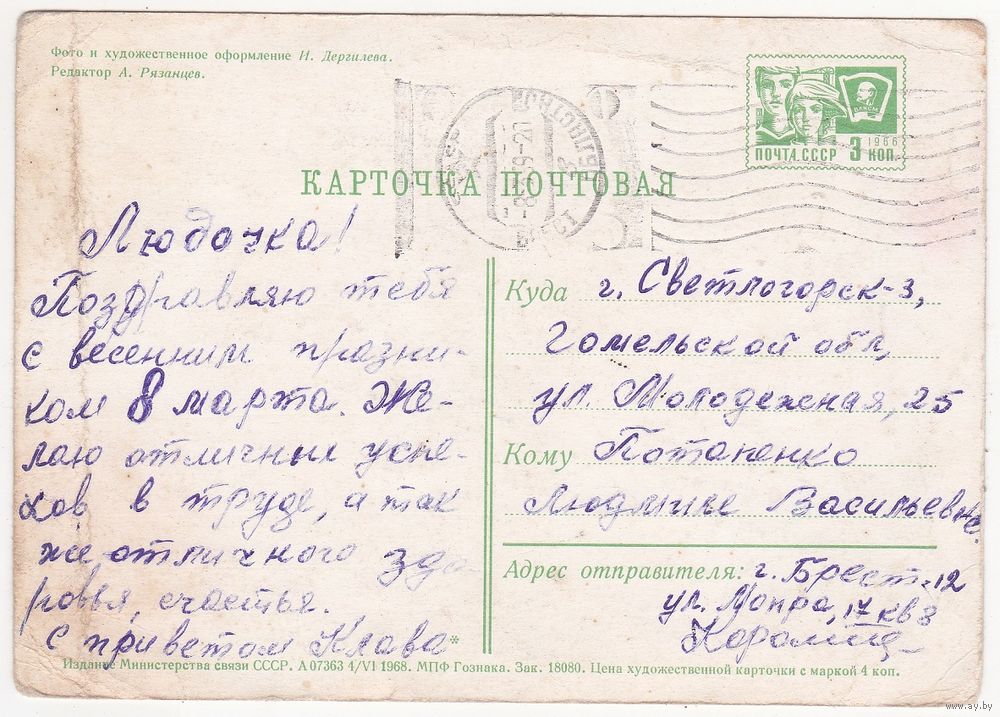 Фото и художественное оформление И. Дергилева.
Редактор А. Рязанцев.
ВЛКСМ
1966
ПОЧТА.СССР 3 КОП.
КАРТОЧКА ПОЧТОВАЯ
Людочка!
Поздравляю тебя
с весенним праздни-
ком 8 марта. Же-
лаю отличных успе-
хов в труде, а так
же отличного здо
ровья, счастья.
С приветом Клава
Куда г. Светлогорск-3,
Гомельской обл,
ул. Молодежная, 25
Кому Потапенко
Людмиле Васильевне.
Адрес отправителя: г. Брест-12
ул. Мопра, 17 кв 8
*
Издание Министерства связи СССР. А 07363 4/VI 1968. МПФ Гознака. Зак. 18080. Цена художественной карточки с маркой 4 коп.
www.ay.by